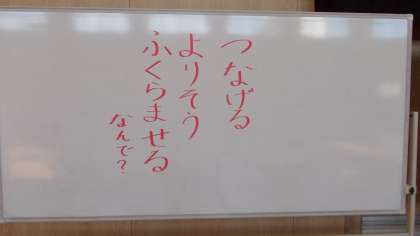 つなげる
よりそう
ふくらませる
なんで？